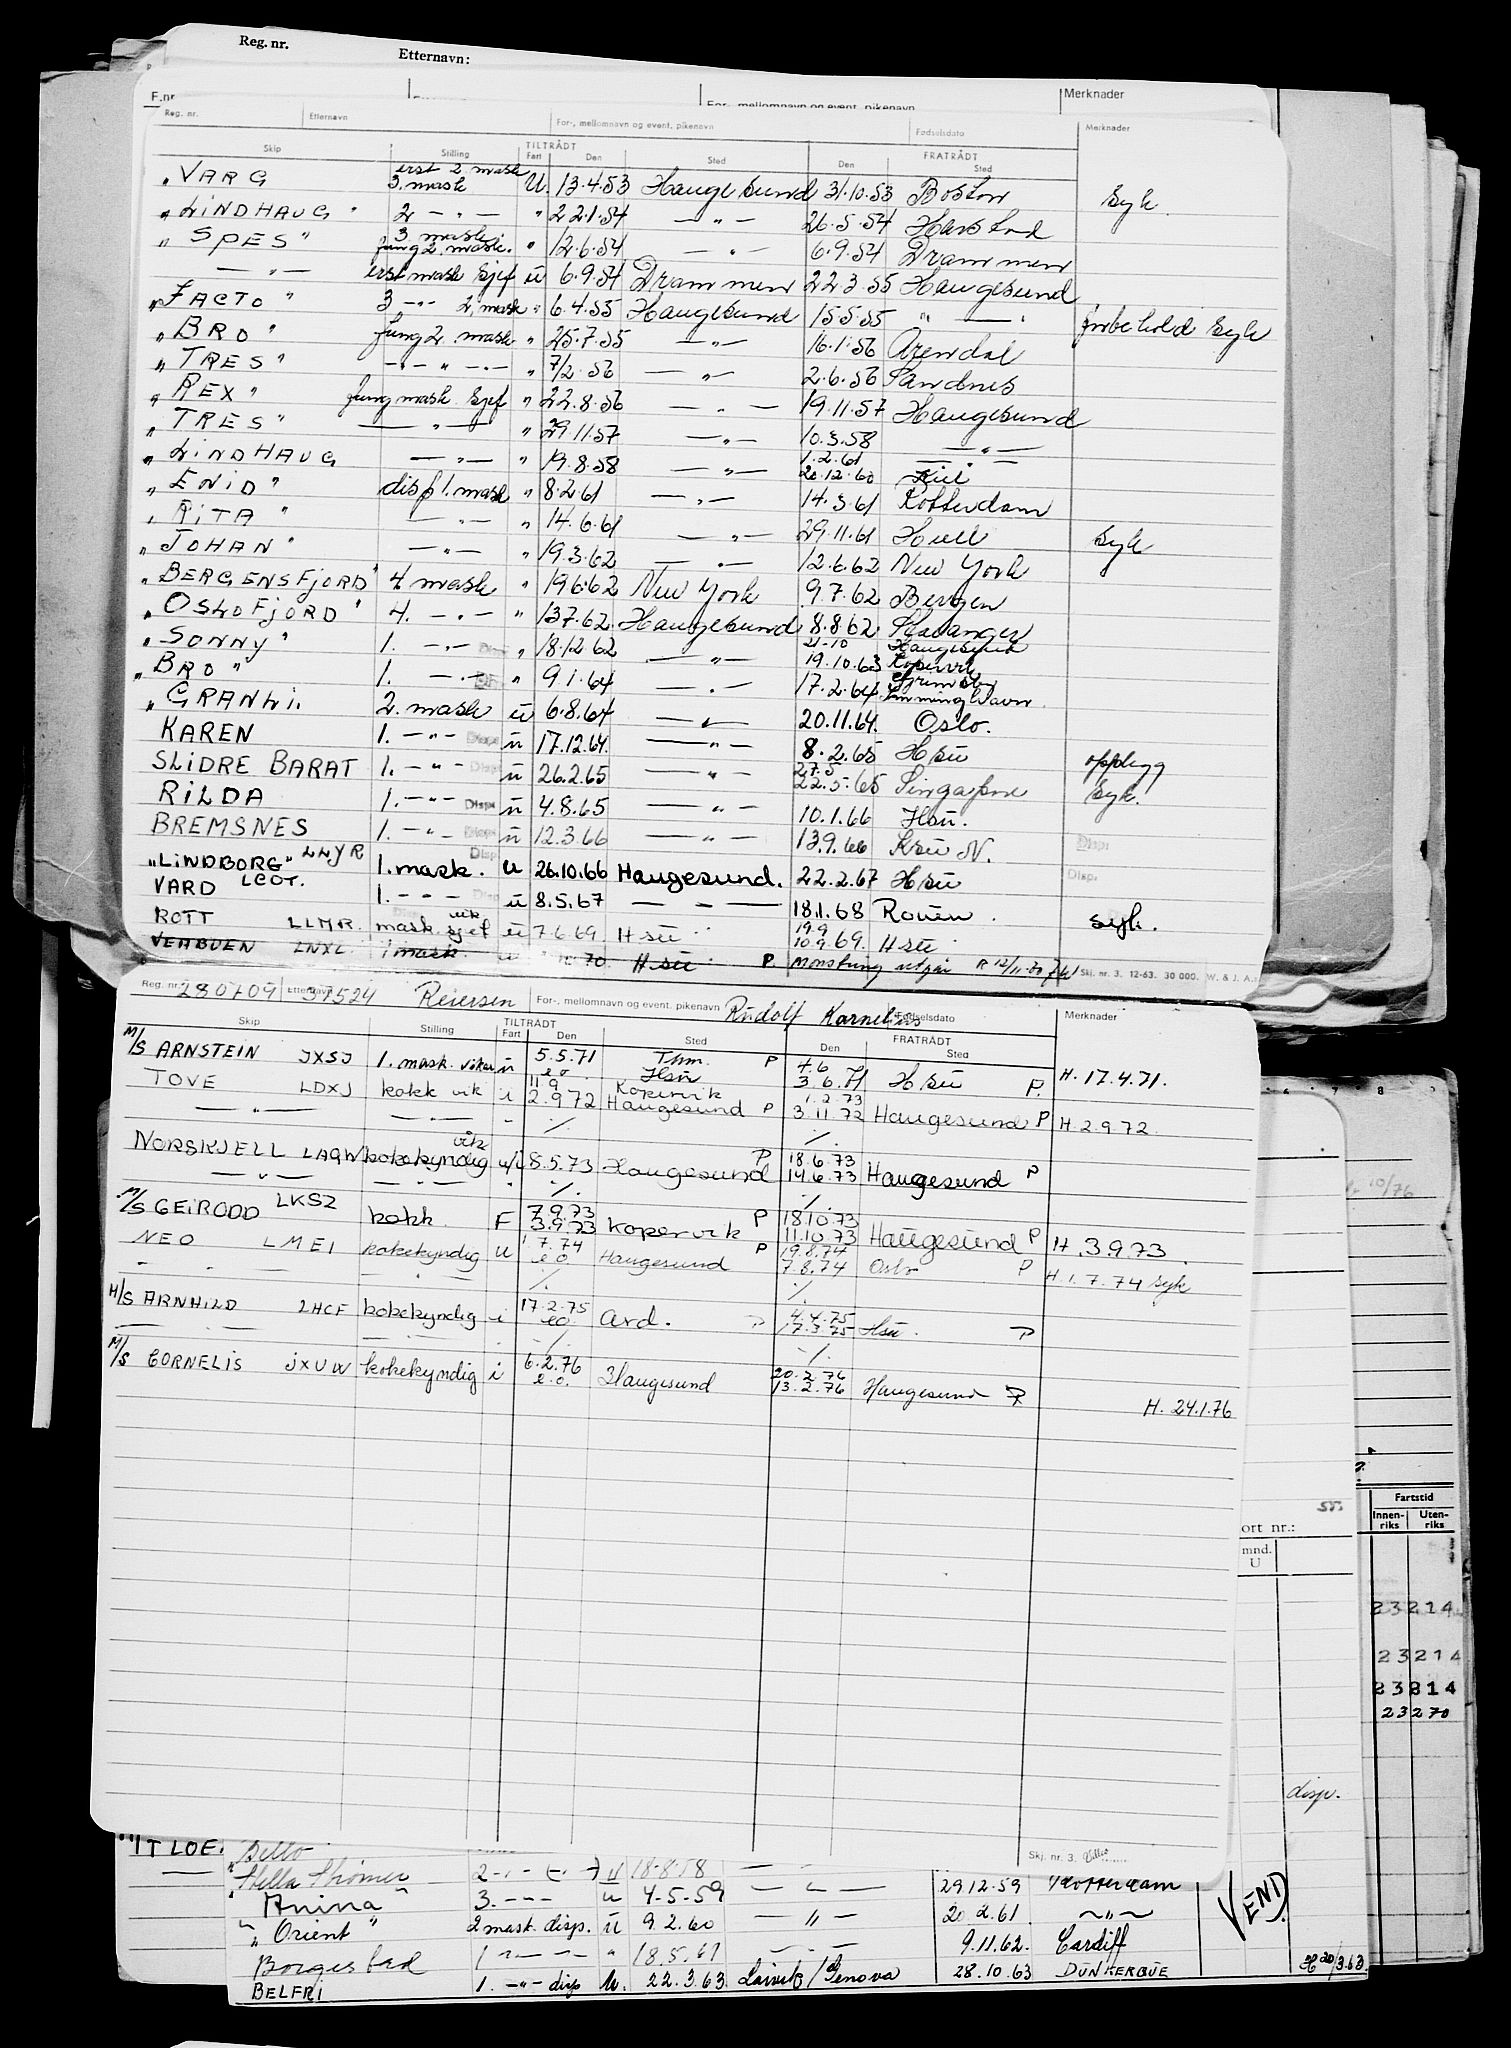 Reg. nr. Etternavn:
F.nr Merknader
Reg. nr. Etternavn For-, mellomnavn og event. pikenavn Fødselsdato Merknader
Skip Stilling TILTRÅDT Fart Den Sted Den FRATRÅDT Sted
"VARG erst 2 mask 3. mask U. 13.4.53 Haugesund 31.10.53 Boston Syk
"LINDHAUG" 2 — " — " 22.1.54 — " — 26.5.54 Harstad
"SPES" 3 mask fung 2. mask. " 12.6.54 — " — 6.9.54 Drammen
— " — erst mask sjef u 6.9.54 Drammen 22.3.55 Haugesund
"FACTO" 3 — " — 2. mask " 6.4.55 Haugesund 15.5.55 " — " forbehold Syk
"BRO" fung 2. mask " 25.7.55 — " — 16.1.56 Arendal
"TRES" — " — " — " — " 7/2.56 — " — 2.6.56 Sandnes
"REX" fung mask. sjef " 22.8.56 — " — 19.11.57 Haugesund
"TRES" — " — " 29.11.57 — " — 10.3.58 — " —
"LINDHAUG — " — " 19.8.58 — " — 1.2.61 20.12.60 — " — Kiel
"ENID" disp 1. mask " 8.2.61 — " — 14.3.61 Rotterdam
"RITA" — " — " 14.6.61 — " — 29.11.61 Hull Syk
"JOHAN" — " — " 19.3.62 — " — 12.6.62 New York
"BERGENSFJORD" 4 mask " 19.6.62 New York 9.7.62 Bergen
"OSLOFJORD" 4. — " — " 13.7.62. Haugesund 8.8.62. Stavanger
"SONNY" 1. — " — Disp " 18.12.62 — " — 21-10 19.10.63 Haugesund Kopervik
"BRO" 1. — " — " 9.1.64 — " — 17.2.64. Grimsby Immingham.
"GRANLI. 2. mask ü 6.8.64 — " — 20.11.64. Oslo.
KAREN 1. — " — Disp ü 17.12.64. — " — 8.2.65 Hsu opplegg
SLIDRE BARAT 1. — " — Disp ü 26.2.65 — " — 27.5 22.5.65 Singapore Syk.
RILDA 1. — " — Disp ü 4.8.65 — " — 10.1.66 Hsu.
BREMSNES 1. — " — Disp ü 12.3.66 — " — 13.9.66 Ksu N. Disp
"LINDBORG" LLYR 1. mask. Disp u 26.10.66 Haugesund. 22.2.67 Hsu Disp.
VARD LCOT. 1. - - - ü 8.5.67 — " — 18.1.68 Rouen. syk.
ROTT LLMR. mask. sjef vik ü 7.6.69. Hsu 19.9 10.9.69. Hsu
VEABUEN LNXL. 1 mask. u 70 Hsu P. Mønstring utgår R 12/11.70
Skj. nr. 3. 12-63. 30 000. W. & J. A.
Reg. nr. 280709 Etternavn 37524 Reiersen For-, mellomnavn og event. pikenavn Rudolf Kornelius Fødselsdato Merknader
Skip Stilling TILTRÅDT Fart Den Sted Den FRATRÅDT Sted
M/S ARNSTEIN JXSJ 1. mask. vikar u 5.5.71 e.o. Thm. Hsu P 4.6 3.6.71 Hsu P. H. 17.4.71.
TOVE LDXJ kokk vik i 11.9 2.9.72 Kopervik Haugesund P 1.2.73 3.11.72 Haugesund P H. 2.9.72.
— " — — " — - ./. ./.
NORSKJELL LAQW kokekyndig vik u/i 8.5.73 Haugesund P 18.6.73 14.6.73 Haugesund P
— " — — " — " ./. ./.
M/S GEIRODD LKSZ kokk. F 7.9.73 3.9.73 Kopervik P 18.10.73 11.10.73 Haugesund P H. 3.9.73.
NEO LMEI kokekyndig u 1.7.74 e.o. Haugesund P 19.8.74 7.8.74 Oslo P H. 1.7.74 syk
- " - — " — ./. ./.
M/S ARNHILD LHCF kokekyndig i 17.2.75 e.o. Ard. P 4.4.75 17.3.75 Hsu. P
— — — — " — - ./. ./.
M/S CORNELIS JXUW kokekyndig i 6.2.76 e.o. Haugesund 20.2.76 13.2.76 Haugesund P
H. 24.1.76
10/76
Fartstid
ort nr.: Innen-riks Uten-riks
mnd. U
23214
23214
23214
23270
disp.
Skj. nr. 3.
M/T LOE
Bello
"Stella 2 - " - u 18-8-58 — " —
"Anina" 3. - - - u 4-5-59 — " — 29.12.59 Rotterdam
"Orient" 2 mask. disp. ü 9.2.60 — " — 20.2.61 — " —
Borgestad 1 — " — " 18.5.61 — " — 9.11.62. Cardiff
BELFRI 1. — " — disp u. 22.3.63 Larvik/Genova 28.10.63 DUNKERQUE
VEND.
H 20/3.63